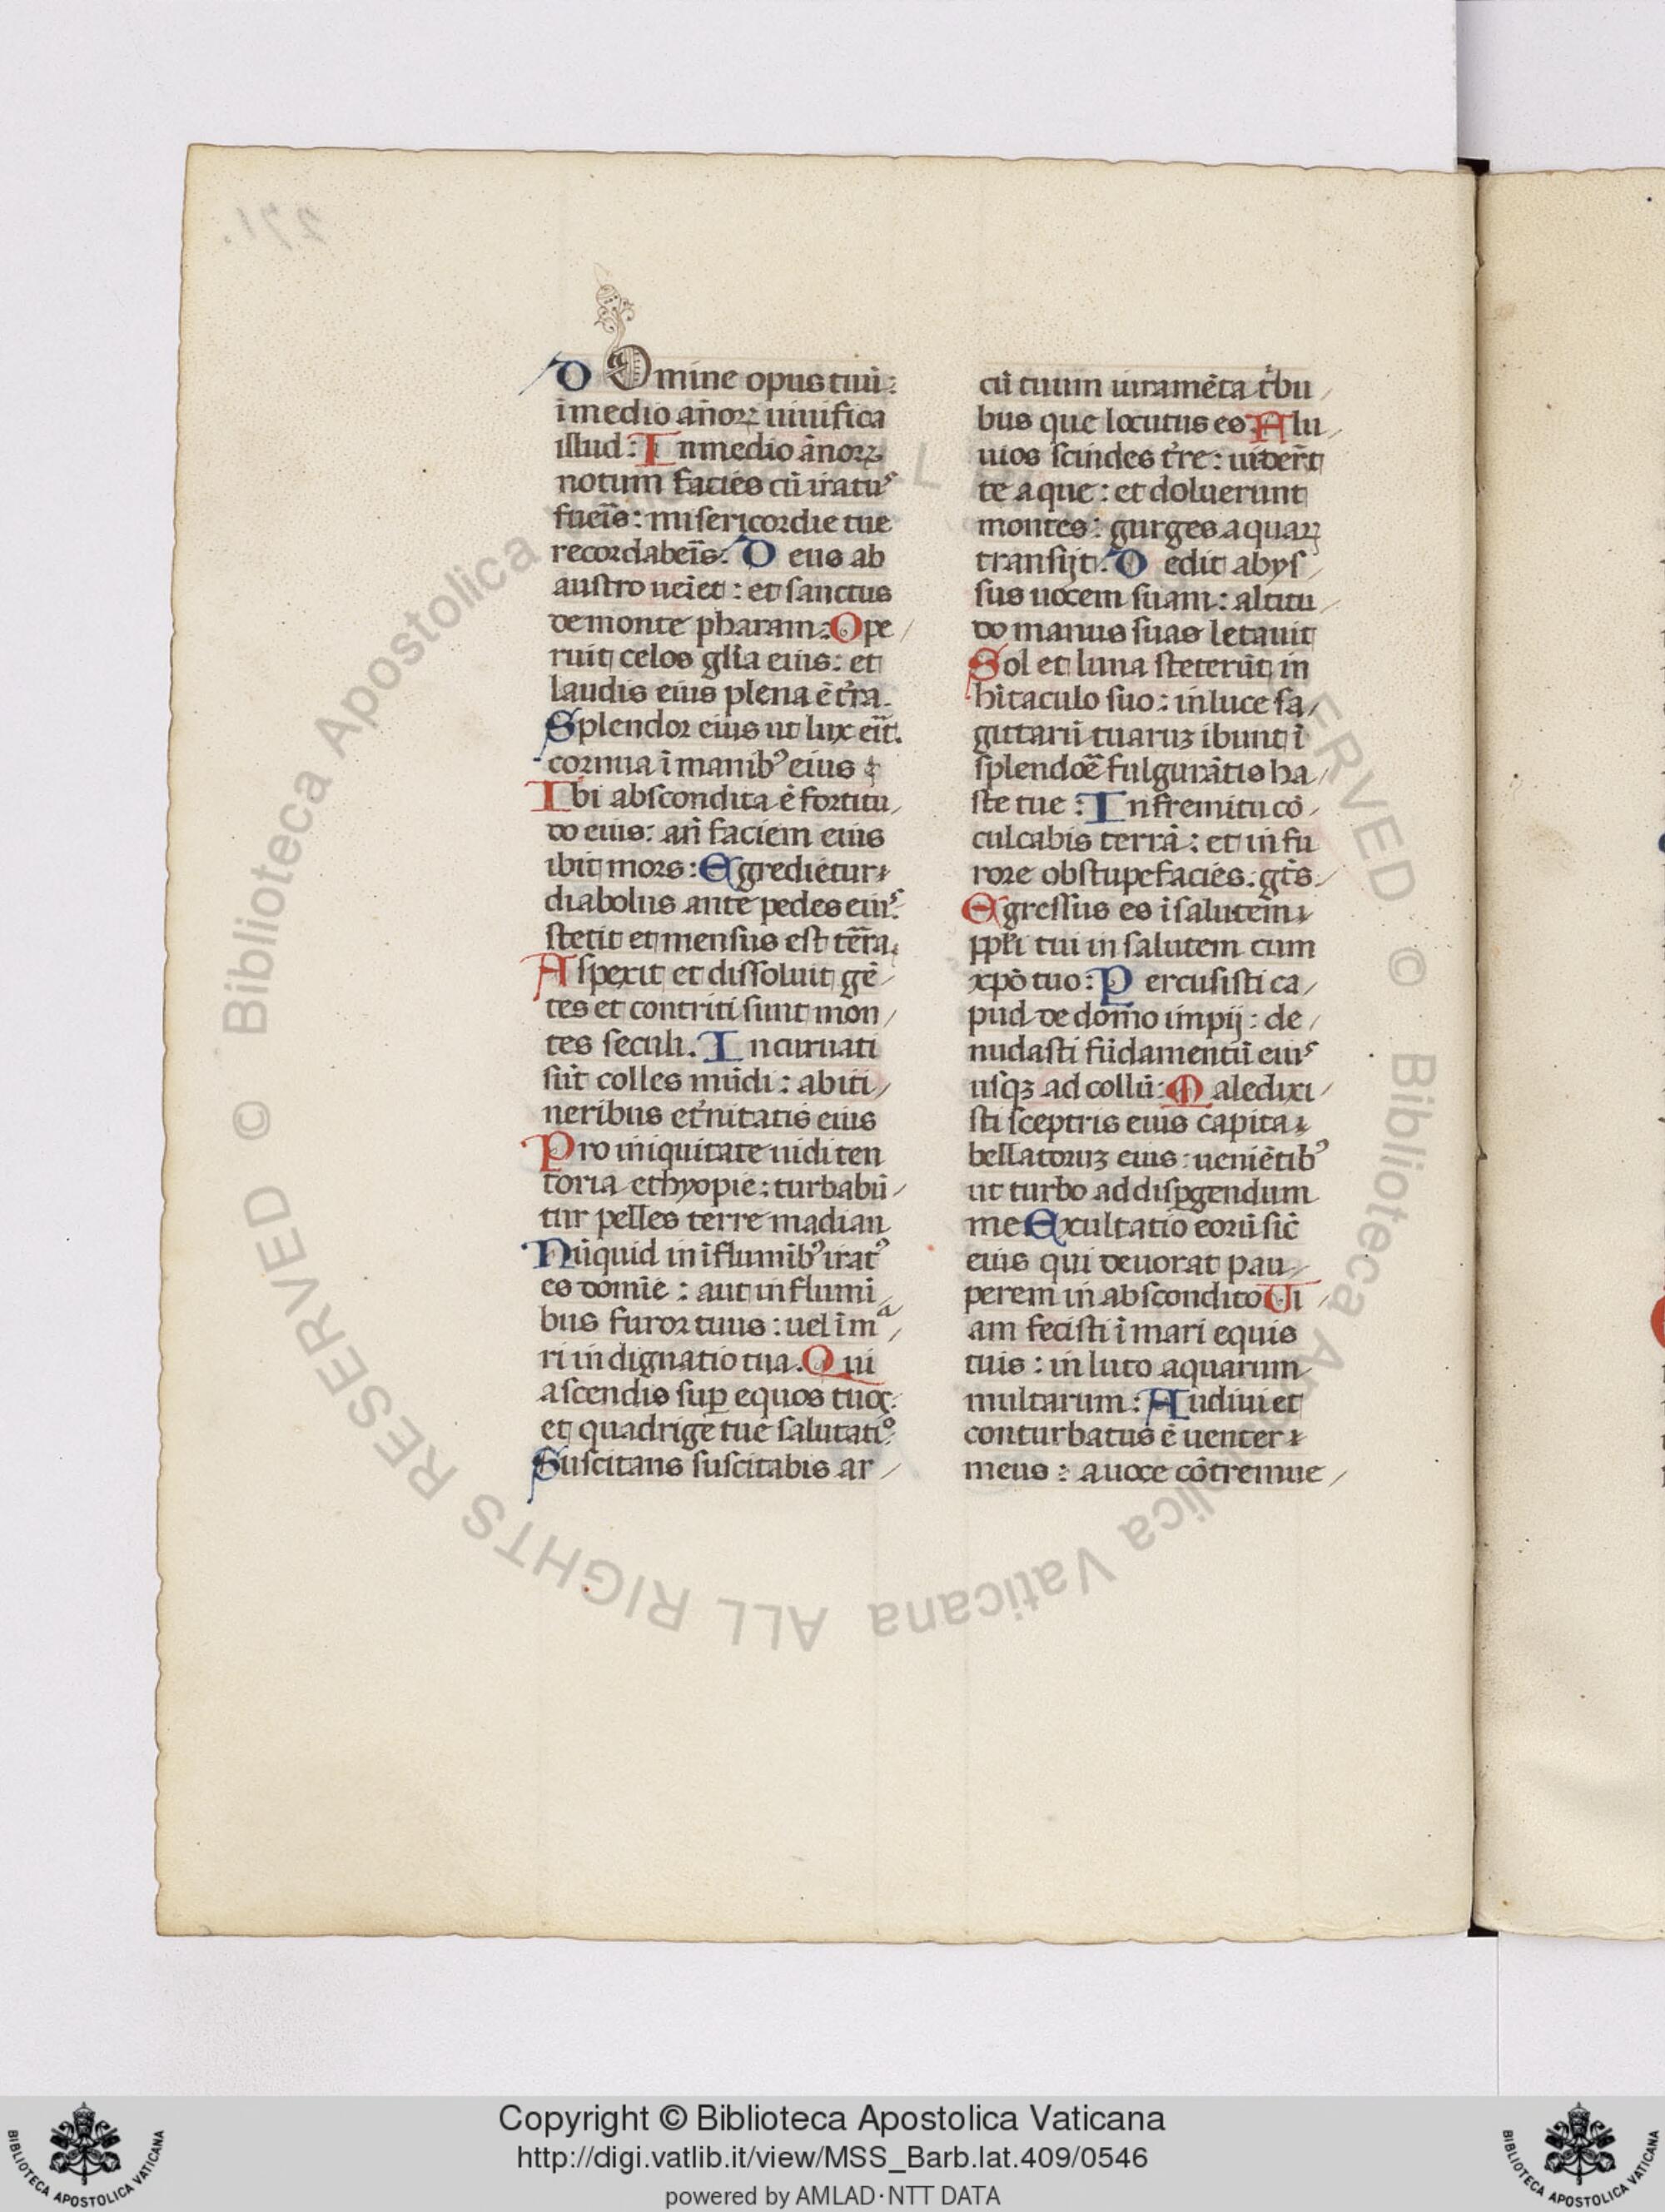 D Domine opus tuū:
ī medio añoꝝ uiuifica
illud: In medio ānoꝝ
notum facies cū iratuˢ
fueīs: misericordie tue
recordabeīs: Deus ab
austro ueīet: et sanctus
de monte pharam: Ope/
ruit celos glīa eius: et
laudis eius plena ē tr̄a.
Splendor eius ut lux erīt.
cornua ī manibꝰ eius
Ibi abscondita ē fortitu/
do eius: añ faciem eius
ibit mors: Egredietur
diabolus ante pedes eiuˢ:
stetit et mensus est ter̄a.
Aspexit et dissoluit gē/
tes et contriti sunt mon/
tes seculi. Incuruati
sūt colles mūdi: ab iti/
neribus et̄nitatis eius
Pro iniquitate uidi ten
toria ethyopie: turbabū/
tur pelles terre madian
Nūquid in ī flumībꝰ iratꝰ
es domīe: aut in flumī
bus furor tuus: uel ī mᵃ/
ri indignatio tua. Qui
ascendis suꝑ equos tuos:
et quadrige tue saluatiᵒ:
Suscitans suscitabis ar/
cū tuum iuramēta tⁱbu/
bus que locutus es: Flu/
uios scindes tr̄e: uider̄t
te aque: et doluerunt
montes: gurges aquaꝝ
transijt. Dedit abys/
sus uocem suam: altitu/
do manus suas leuauit
Sol et luna steterūt in
hītaculo suo: in luce sa/
gittarū tuaruꝫ ibunt ī
splendoē fulgurātis ha/
ste tue: In fremitu cō/
culcabis terrā: et in fu
rore obstupefacies. gt̄s.
Egressus es ī salutem
ppłi tui in salutem cum
xp̄o tuo: Percusisti ca/
pud de domo impij: de/
nudasti fūdamentū eiuˢ
usqꝫ ad collū: Maledixi/
sti sceptris eius capita
bellatoruꝫ eius: ueniētibꝰ
ut turbo ad dispgendum
me Excultatio eorū sic̄
eius qui deuorat pau/
perem in abscondito Ui/
am fecisti ī mari equis
tuis: in luto aquarum
multarum: Audiui et
conturbatus ē uenter
meus: a uoce cōtremue/
Copyright © Biblioteca Apostolica Vaticana
http://digi.vatlib.it/view/MSS_Barb.lat.409/0546
powered by AMLAD·NTT DATA